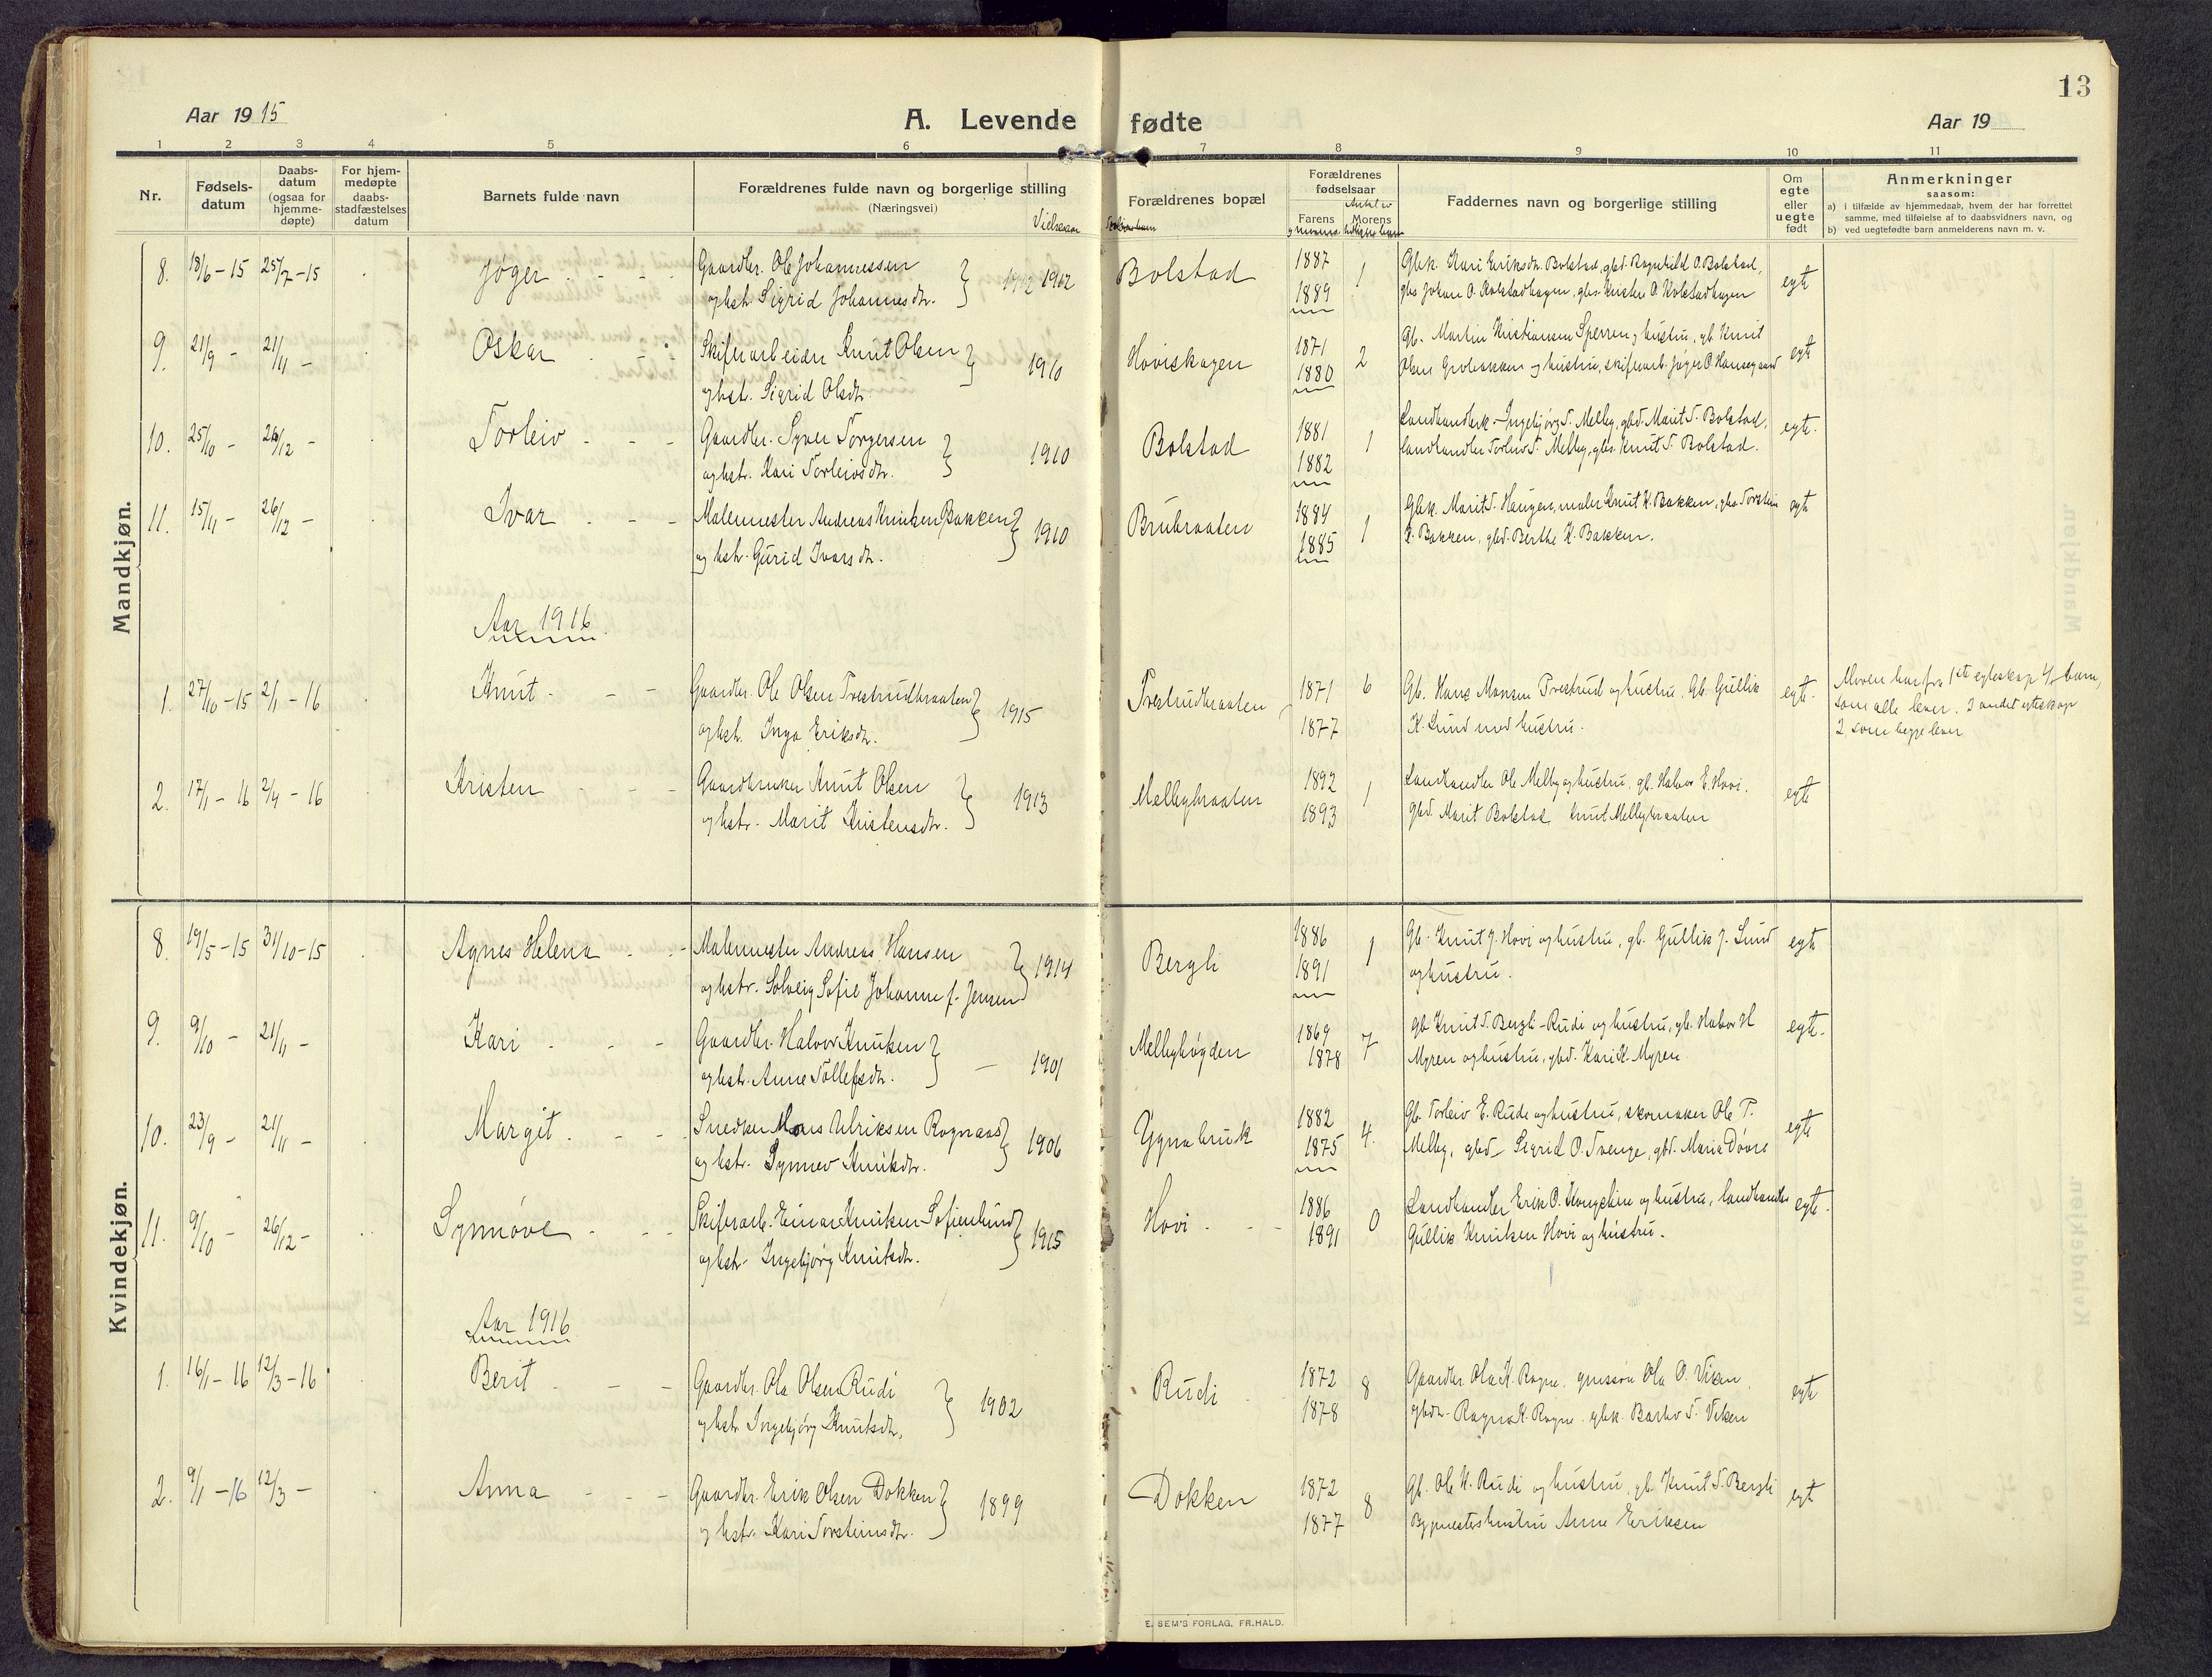 13
Aar 1915
A. Levende fødte
Aar 19
1 2 3 4 5 6 7 8 9 10 11
Nr.
Fødsels-
datum
Daabs-
datum
(ogsaa for
hjemme-
døpte)
For hjem-
medøpte
daabs-
stadfæstelses
datum
Barnets fulde navn
Forældrenes fulde navn og borgerlige stilling
(Næringsvei)
Vielsesaar
Forældrenes bopæl
Forældrenes
fødselsaar
Farens Morens
Faddernes navn og borgerlige stilling
Om
egte
eller
uegte
født
Anmerkninger
saasom:
a) i tilfælde av hjemmedaab, hvem der har forrettet
samme, med tilføielse af to daabsvidners navn, og
b) ved uegtefødte barn anmelderens navn m. v.
Mandkjøn.
8. 18/6-15 25/7-15 Jøger Gaardbr. Ole Johannessen 1912 Bolstad 1887 1 Gbk. Kari Eriksdr. Bolstad, gbd. Ragnhild O. Bolstad, egte
og hst. Sigrid Johannesdr. 1889 gbs. Johan O. Kolstadhagen, gbs. Kristen O. Kolstadhagen
9. 21/9 - 21/11 - Oskar Skiferarbeider Knut Olsen 1910 Hoviskagen 1871 2 Gb. Martin Kristiansen Sperren og hustru, gb. Knut egte
og hst. Sigrid Olsdr. 1880 Olsen og hustru, skiferarb. Jøger P. Hansegaard
10. 25/10 - 26/12 - Torleiv Gaardbr. Syver Torgersen 1910 Bolstad 1881 1 Landhandlerk. Ingebjørg T. Melby, gbd. Marit T. Bolstad, egte.
og hst. Kari Torleivsdr. 1882 landhandler Torleiv T. Melby, gbs. Knut T. Bolstad.
11. 15/11 - 26/12 - Ivar Malermester Andreas Knutsen Bakken 1910 Brubraaten 1884 1 Gbk. Marit T. Haugen, maler Knut K. Bakken, gbs. Torstein egte
og hst. Gurid Ivarsdr. 1885 K. Bakken, gbd. Berthe K. Bakken.
Aar 1916.
1. 27/10-15 2/1-16 Knut Gaardbr. Ole Olsen Trestrudbraaten 1915 Trestrudbraaten 1871 6 Gb. Hans Monsen Trestrud og hustru, Gb. Gullik egte. Moren har fra 1ste egteskap 4 barn,
og hst. Inga Eriksdr. 1877 K. Lund med hustru. som alle lever. I andet egteskap
2 som begge lever
2. 17/1-16 2/4-16 Kristen Gaardbruker Knut Olsen 1913 Mellbybraaten 1892 1 Landhandler Ole Melby og hustru, gb. Halvor E. Hovi. egte
og hst. Marit Kristensdr. 1893 gbd. Marit Bolstad Knut Mellbybraaten
Kvindekjøn.
8. 19/5-15 31/10-15 Agnes Helena Malermester Andreas Hansen 1914 Bergli 1886 1 Gb. Knut J. Hovi og hustru, gb. Gullik J. Lund egte
og hstr. Solveig Sofie Johanne f. Jensen 1891 og hustru.
9. 9/10 - 21/11 - Kari Gaardbr. Halvor Knutsen 1901 Mellbybøgden 1869 7 Gb. Knut T. Bergli-Rudi og hustru, gb. Halvor H egte.
og hst. Anne Tollefsdr. 1878 Myren og hustru, gbd. Kari K. Myren
10. 23/9 - 21/11 - Margit Snedker Mons Ulriksen Rognaas 1906 Ygnabruk 1882 4. Gb. Torleiv E. Rude og hustru, skomaker Ole T. egte
og hstr. Synnev Knutsdr. 1875 Melby, gbd. Sigrid O. Trenge, gbd. Marie Døvre
11. 9/10 - 26/12 - Synnøve Skiferarb. Einar Knutsen Sofienlund 1915 Hovi 1886 0 Landhandler Erik O. Kongslien og hustru, landhandler egte.
og hst. Ingebjørg Knutsdr. 1891 Gullik Knutsen Hovi og hustru.
Aar 1916
1. 16/1-16 12/3-16 Berit Gaardbr. Ola Olsen Rudi 1902 Rudi 1872 8 Gaardbr. Ola K. Rogne, Ola O. Viken egte
og hst. Ingebjørg Knutsdr. 1878 gbdr. Ragna K. Rogne, gbk. Barbo T. Viken
2. 9/1-16 12/3 - Anna Gaardbr. Erik Olsen Dokken 1899 Dokken 1872 8 Gb. Ole K. Rudi og hustru, gb. Knut T. Bergli egte
og hst. Kari Torsteinsdr. 1877 Bygmesters hustru Anne Eriksen
E. SEM'S FORLAG, FR.HALD.